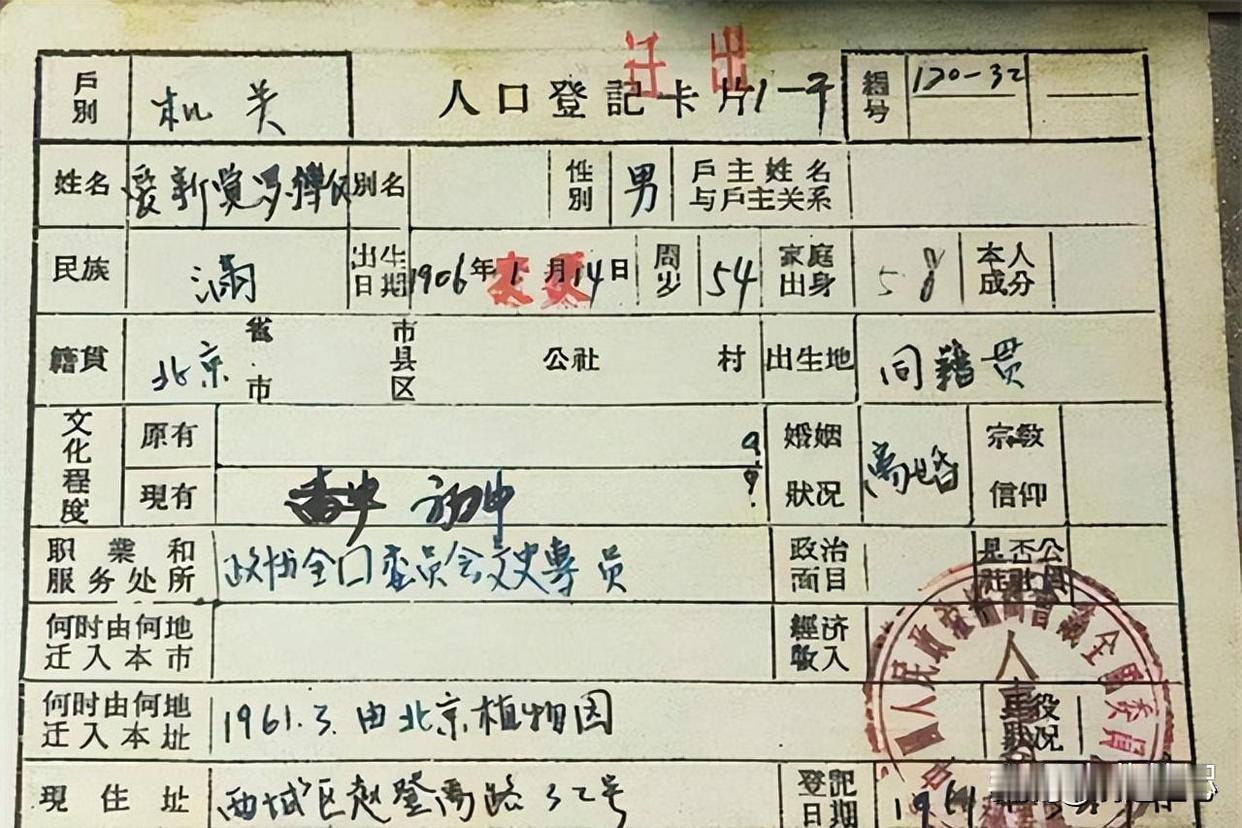 迁出
戶別 机关 人口登記卡片 1一平 編号 120-32
姓名 愛新覚罗·溥仪 別名 性別 男 戶主姓名与戶主关系
民族 满 出生日期 1906年1月14日 周岁 54 家庭出身 本人成分
籍貫 北京 省市 市县区 公社 村 出生地 同籍贯
文化程度 原有 婚姻狀况 离婚 宗教信仰
現有 初中
职業和服务处所 政协全囗委员会文史專员 政治面目 是否公
何时由何地迁入本市 經济收入
何时由何地迁入本址 1961.3.由北京植物园 役况
現住址 西城区赵登禹路32号 登記日期
人民政 會議全國委員